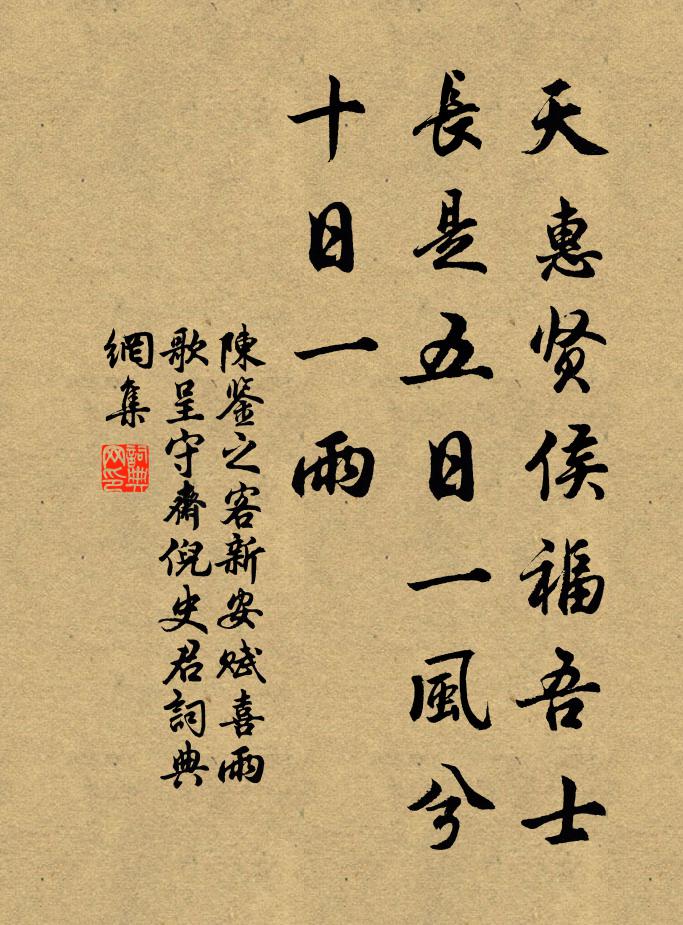 天惠贤侯福吾士
長是五日一風兮
十日一雨
陳鉴之客新安赋喜雨
歌呈守齋倪史君詞典
網集
詞典网印